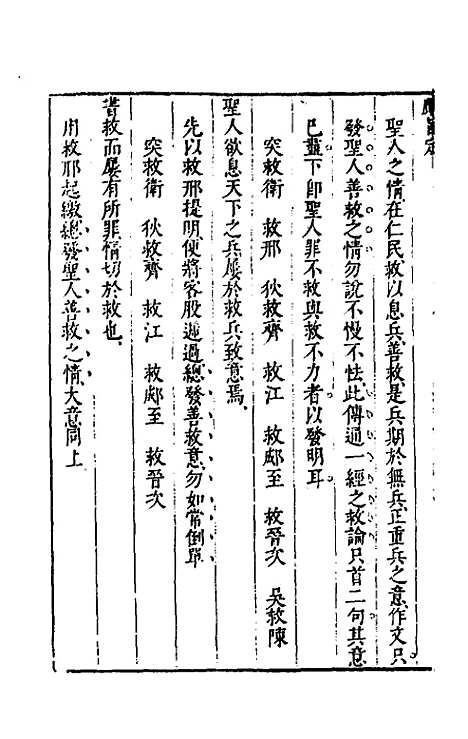 聖人之情在仁民救以息兵善救是兵期於無兵正重兵之意作文只
發聖人善救之情勿說不慢不怯此傳通一經之救論只首二句其意
已盡下即聖人罪不救與救不力者以發明耳
突救衛 救邢 狄救齊 救江 救鄭至 救晉次 吳救陳
聖人欲息天下之兵屢於救兵致意焉
先以救邢提明便將客股遞過總發善救意勿如常倒單
突救衛 狄救齊 救江 救鄭至 救晉次
書救而屢有所罪情切於救也
用救邢起繳總發聖人善救之情大意同上